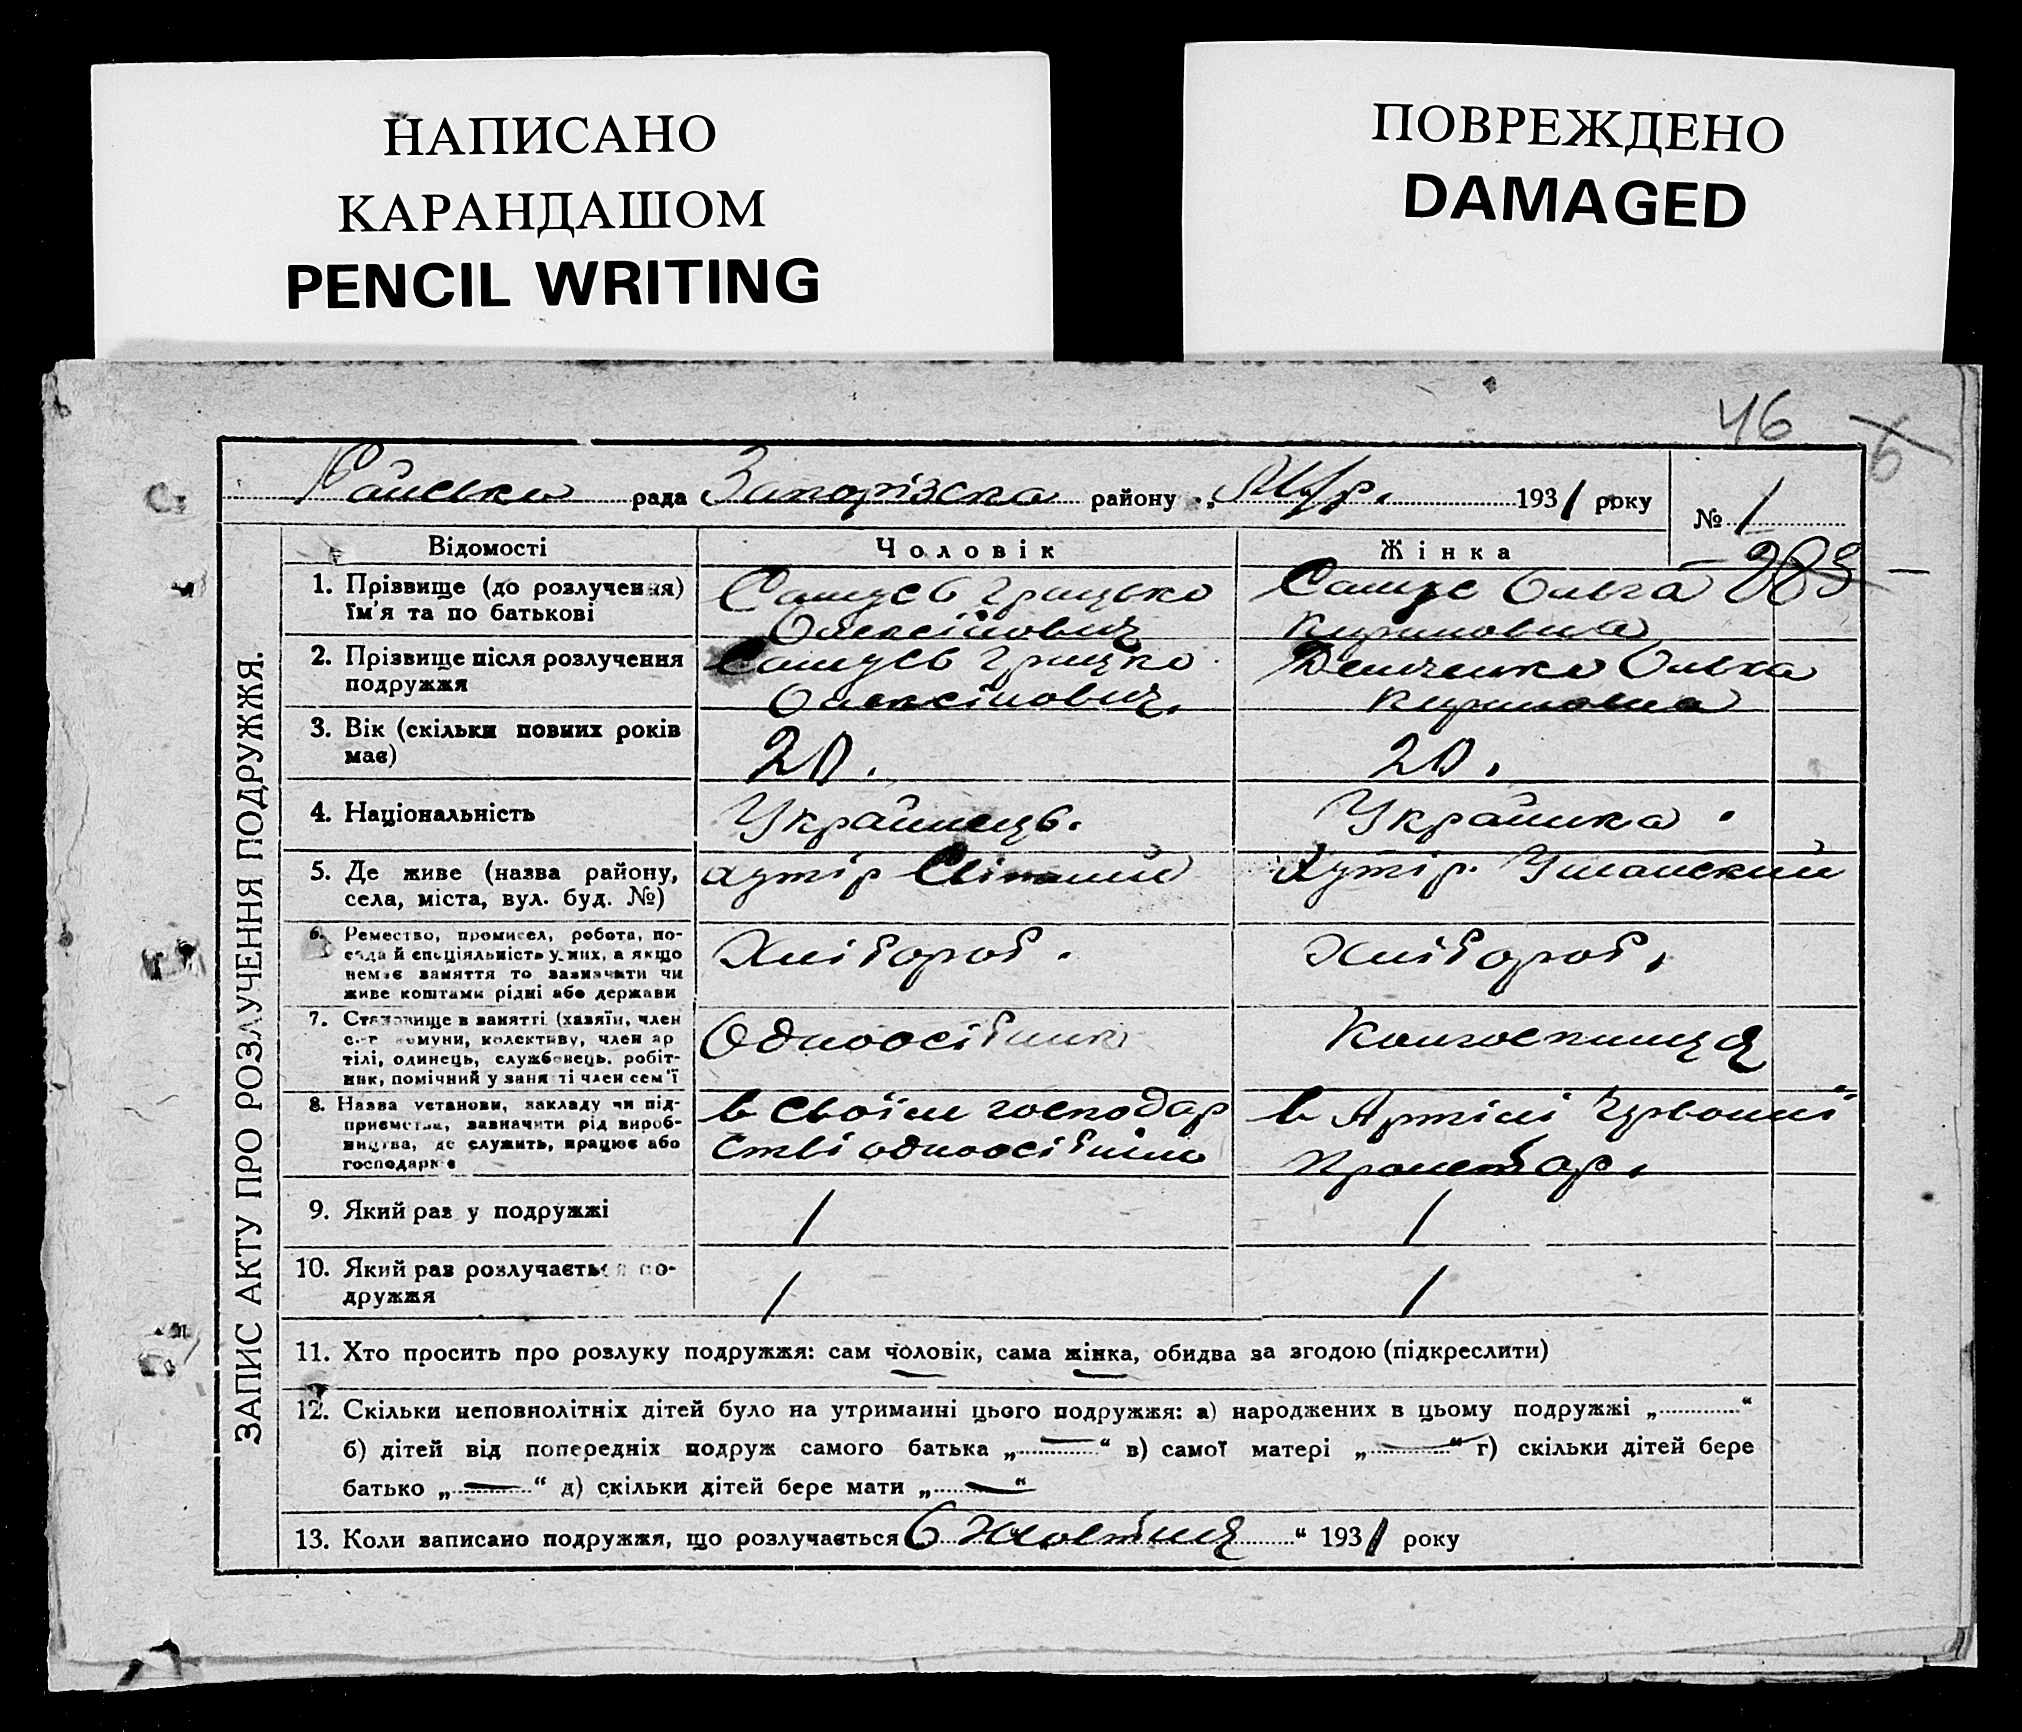 НАПИСАНО
КАРАНДАШОМ
PENCIL WRITING
ПОВРЕЖДЕНО
DAMAGED
46
6
рада Запорізска району 1931 року
№ 1
ЗАПИС АКТУ ПРО РОЗЛУЧЕННЯ ПОДРУЖЖЯ.
Відомості
Чоловік
Жінка
1. Прізвище (до розлучення)
їм'я та по батькові
Самусь Грицько
Олексійович
Самус Ольга
Кириловна
2. Прізвище після розлучення
подружжя
Самусь Грицко
Олексійович.
Демченко Ольха
Кириловна
3. Вік (скільки повних років
має)
20.
20.
4. Національність
Українець.
Украинка.
5. Де живе (назва району,
села, міста, вул. буд. №)
хутір
Хутір. Уманский
6. Ремество, промисел, робота, по-
сада й спеціяльність у них, а якщо
немає заняття то зазначити чи
живе коштами рідні або держави
Хлібороб.
Хлібороб.
7. Становище в занятті (хазяїн, член
с-г комуни, колективу, член ар
тілі, одинець, службовець, робіт-
ник, помічний у занятті член сем'ї
Одноосібник
Колгоспниця
8. Назва установи, закладу чи під-
приємства, зазначити рід вироб-
ництва, де служить, працює або
господарює
в своїм господар
стві одноосібним
в Артілі Червоний
Пролетар.
9. Який раз у подружжі
1
1
10. Який раз розлучається по-
дружжя
1
1
11. Хто просить про розлуку подружжя: сам чоловік, сама жінка, обидва за згодою (підкреслити)
12. Скільки неповнолітніх дітей було на утриманні цього подружжя: а) народжених в цьому подружжі „ “
б) дітей від попередніх подруж самого батька „ — “ в) самої матері „ — “ г) скільки дітей бере
батько „ — “ д) скільки дітей бере мати „ — “
13. Коли записано подружжя, що розлучається 6 Жовтня “ 1931 року